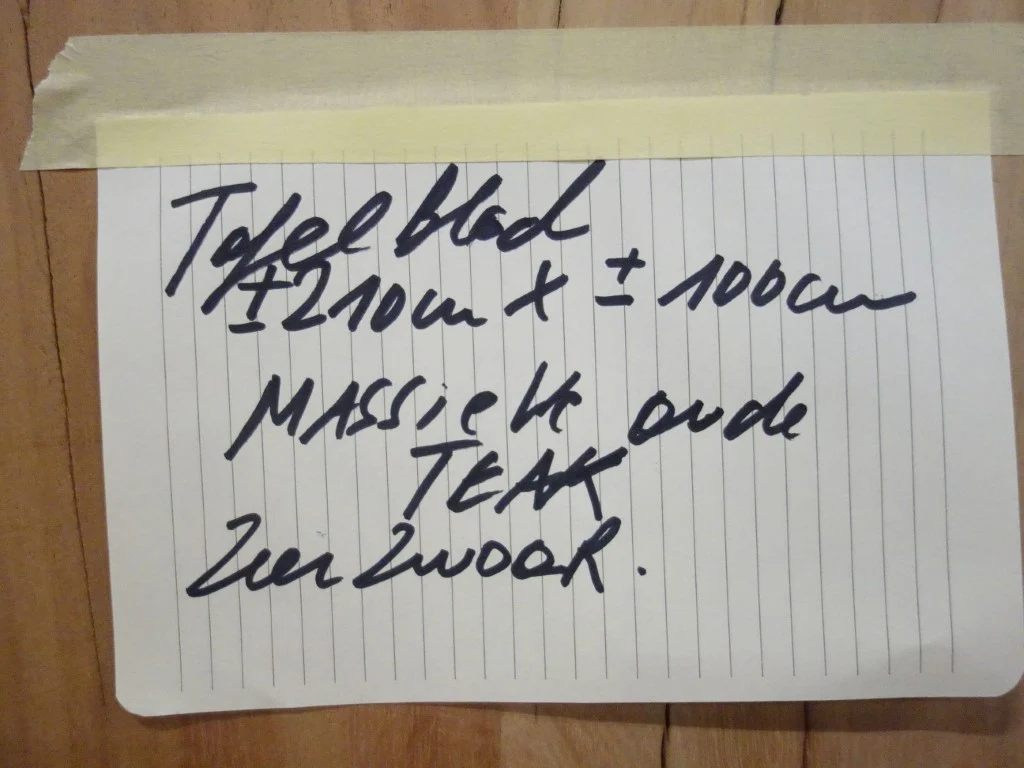 Tafelblad
±210cm x ± 100cm
MASSieve oude
TEAK
Zeer ZwaaR.